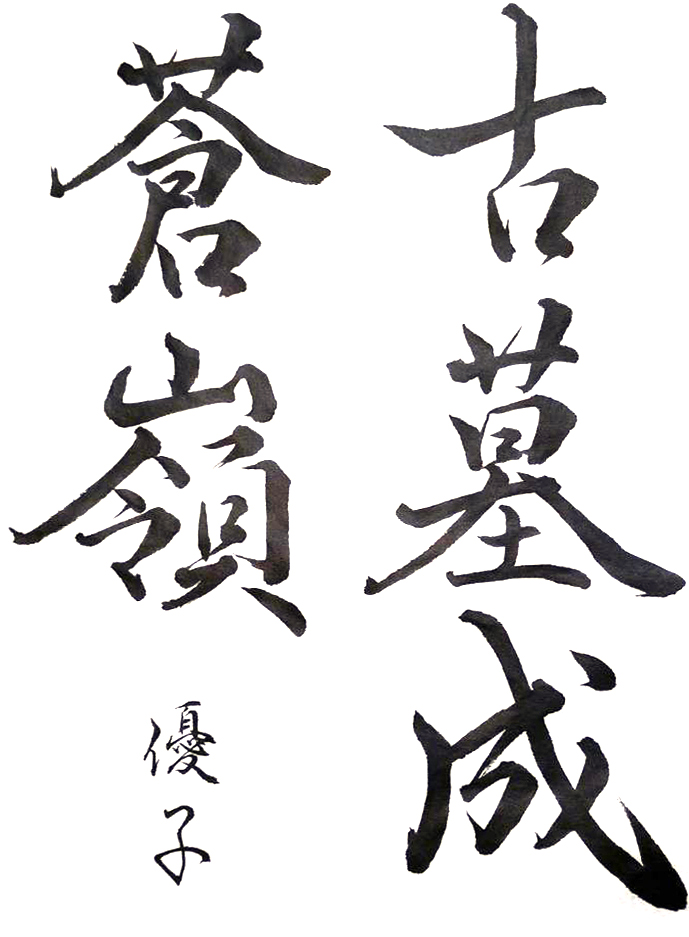 古墓成
蒼嶺
優子